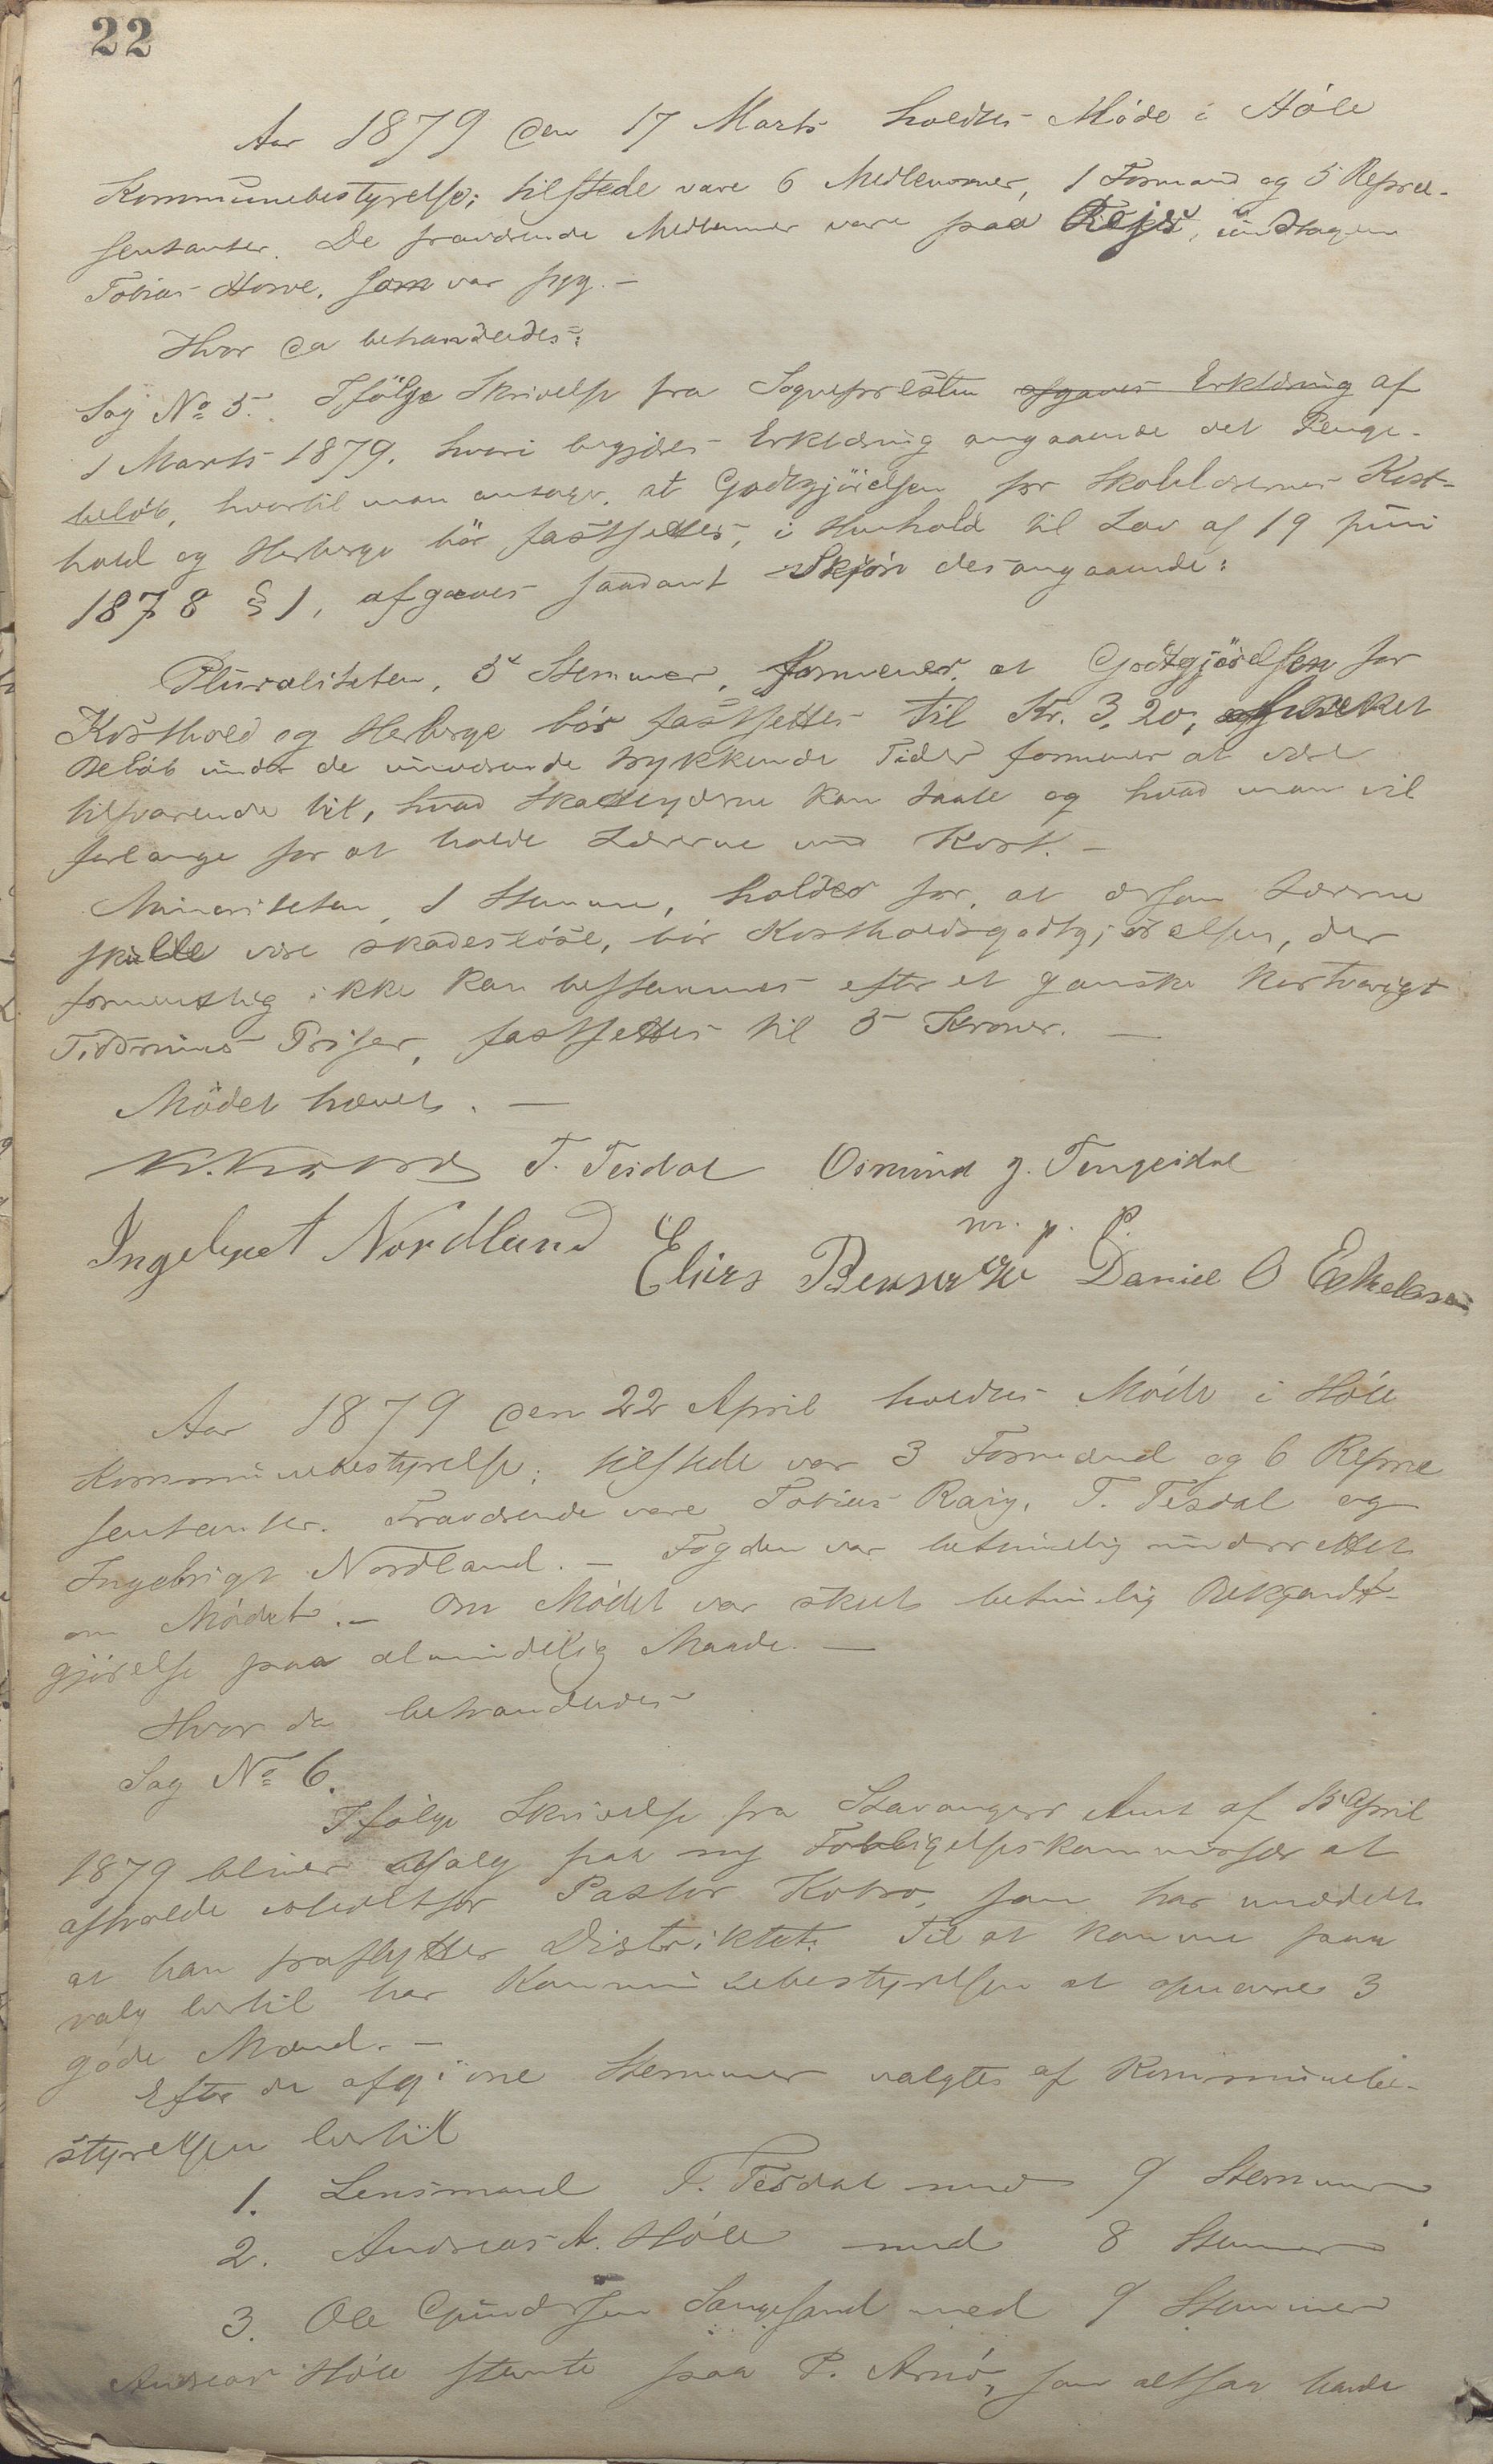 22
Aar 1879 den 17 Marts holdtes Möde i Höle
Kommunebestyrelse; tilstede vare 6 Medlemmer, 1 Formand og 5 Repræ-
sentanter. De fraværende Medlemmer vare paa Rejse, undtagen
Tobias Howe, som var syg. –
Hvor da behandledes:
Sag No 5. Ifölge Skrivelse fra Sognepresten afgaves Erklæring af
1 Marts 1879, hvori begjæres Erklæring angaaende det Penge-
belöb, hvortil man antager, at Godtgjörelsen for Skolelærernes Kost-
hold og Herberge bör fastsettes, i Henhold til Lov af 19 juni
1878 § 1, afgaves saadant Skjön desangaaende:
Pluraliteten, 5 Stemmer, formener, at Godtgjörelsen for
Kosthold og Herberge bör fastsettes til Kr. 3,20, hvilket
Belöb under de nuværende trykkende Tider formener at være
tilsvarende til, hvad Skatteyderne kan taale og hvad man vil
forlange for at holde Lærerne med Kost. –
Minoriteten, 1 Stemme, holder for, at dersom Lærerne
skulle være skadeslöse, bör Kostholdsgodtgjörelsen, der
formentlig ikke kan bestemmes efter et ganske kortvarigt
Tidsrums Priser, fastsettes til 5 Kroner. –
Mödet hævet. –
T. Tesdal Osmund J. Tengesdal
m. p. P.
Ingebret Nordland Elias Daniel O Eskelsen
Aar 1879 den 22 April holdtes Möde i Höle
Kommunebestyrelse; tilstede var 3 Formænd og 6 Repræ
sentanter. Fraværende vare Tobias Raig, T. Tesdal og
Ingebrigt Nordland. – Fogden var betimelig underrettet
om Mödet. – Om Mödet var skeet betimelig Bekjændt-
gjörelse paa almindelig Maade. –
Hvor da behandledes
Sag No 6.
Ifölge Skrivelse fra Stavanger Amt af 15 April
1879 bliver Valg paa ny Forligelseskommissær at
afholde istedetfor Pastor Kobro, som har meddelt
at han fraflytter Distriktet. Til at komme paa
valg hertil har Kommunebestyrelsen at opnævne 3
gode Mænd. –
Efter de afgivne Stemmer valgtes af Kommunebe-
styrelsen hertil
1. Lensmand T. Tesdal med 9 Stemmer
2. Andreas A. Höle med 8 Stemmer
3. Ole Gundersen Sangesand med 9 Stemmer
Andreas Höle stemte paa P. Arnö, som altsaa havde